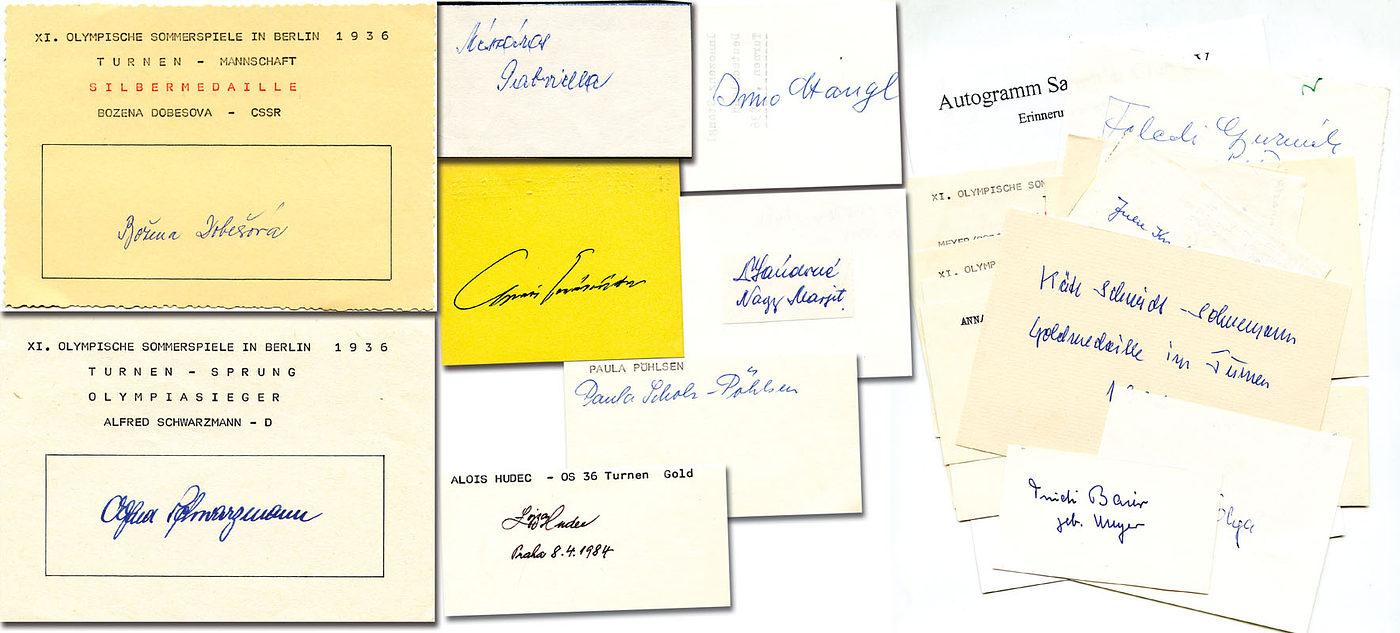 XI. OLYMPISCHE SOMMERSPIELE IN BERLIN 1936
TURNEN - MANNSCHAFT
SILBERMEDAILLE
BOZENA DOBESOVA - CSSR
Božena Dobešová
XI. OLYMPISCHE SOMMERSPIELE IN BERLIN 1936
TURNEN - SPRUNG
OLYMPIASIEGER
ALFRED SCHWARZMANN - D
Alfred Schwarzmann
Mészáros
Gabriella
Stangl
Nagy Margit
PAULA PÖHLSEN
Paula Scholz-Pöhlsen
ALOIS HUDEC - OS 36 Turnen Gold
Hudec
Praha 8.4.1984
Autogramm Sa
Erinneru
XI. OLYMPISCHE SOM
MEYER
XI. OLYMP
ANNA
Käte Schmidt-Sohnemann
Goldmedaille im Turnen
Trudi Baier
geb. Meyer
Olga